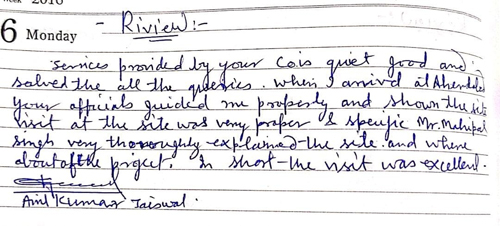 Week 2016
6 Monday
- Riview:-
Services provided by your Co is quiet good and
solved the all the queries. When I arrived at Aherdales
your officials guided me properly and shown the site
visit at the site was very proper & specific Mr. Mahipal
singh very thoroughly explained the site and where
about of the project. In short the visit was excellent.
Anil Kumar Jaiswal.